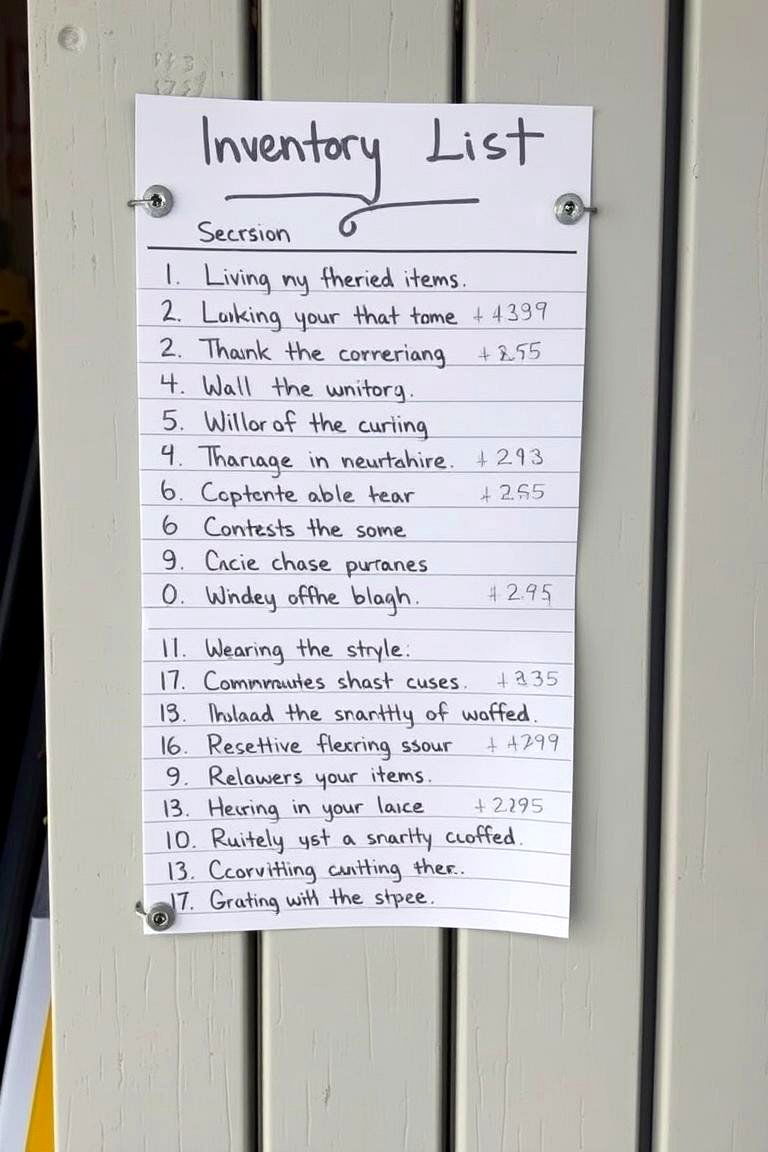 Inventory List
Secrsion
1. Living ny fheried items.
2. Laiking your that tome + 4399
2. Thaink the correriang + 255
4. Wall the wnitorg.
5. Willor of the curting
4. Thariage in neurtahire. + 293
6. Coptente able tear + 255
6 Contests the some
9. Cacie chase purranes
0. Windey offhe blagh. + 295
11. Wearing the stryle.
17. Commmutes shast cuses. + 235
13. the snarttly of waffed.
16. Resettive flexring ssour + 4299
9. Relawers your items.
13. Hewring in your laice + 2295
10. Ruitely yst a snarlty ccoffed.
13. Ccorvitting cantting ther..
17. Grating with the stpee.